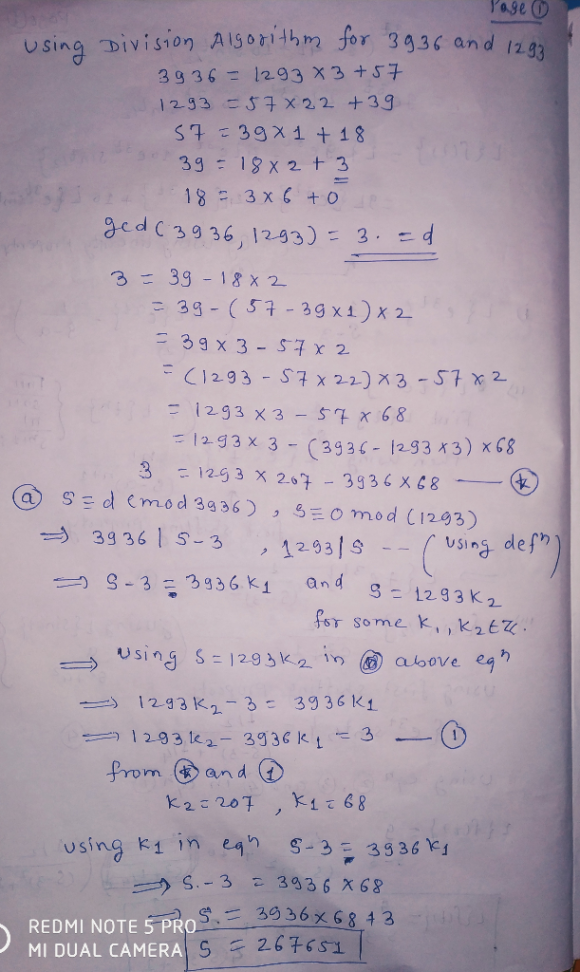 Page ①
Using Division Algorithm for 3936 and 1293
3936 = 1293 × 3 + 57
1293 = 57 × 22 + 39
57 = 39 × 1 + 18
39 = 18 × 2 + 3
18 = 3 × 6 + 0
gcd(3936, 1293) = 3. = d
3 = 39 - 18 × 2
= 39 - (57 - 39 × 1) × 2
= 39 × 3 - 57 × 2
= (1293 - 57 × 22) × 3 - 57 × 2
= 1293 × 3 - 57 × 68
= 1293 × 3 - (3936 - 1293 × 3) × 68
3 = 1293 × 207 - 3936 × 68 — ⊛
ⓐ S ≡ d (mod 3936), S ≡ 0 mod (1293)
⟹ 3936 | S-3 , 1293 | S -- (using defⁿ)
⟹ S-3 = 3936K₁ and S = 1293K₂
for some K₁, K₂ ∈ ℤ.
⟹ Using S = 1293K₂ in above eqⁿ
⟹ 1293K₂ - 3 = 3936K₁
⟹ 1293K₂ - 3936K₁ = 3 — ①
from ⊛ and ①
K₂ = 207 , K₁ = 68
using K₁ in eqⁿ S-3 = 3936K₁
⟹ S.-3 = 3936 × 68
⟹ S. = 3936 × 68 + 3
S = 267651
REDMI NOTE 5 PRO
MI DUAL CAMERA